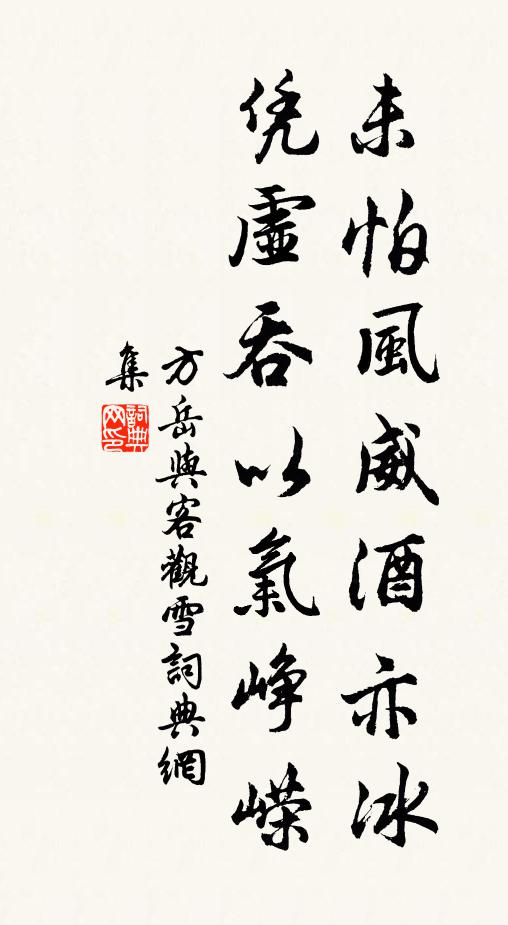 未怕風威酒亦冰
凭虛吞以氣崢嶸
方岳與客觀雪詞典網
集
詞典
网印